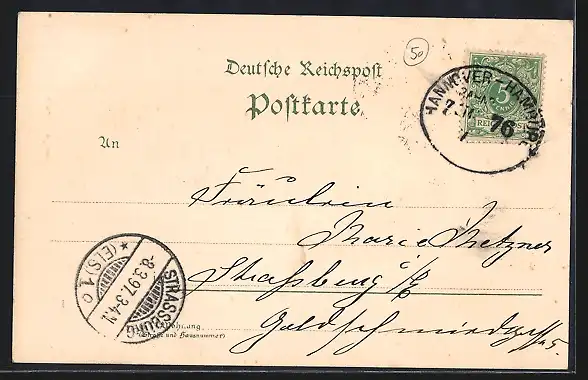 50
Deutsche Reichspost
Postkarte
HANNOVER-HAMBURG
76
5
REICHSPOST
An
Fräulein
Marie Metzner
Strassburg i/E
Goldschmiedgasse 5.
STRASSBURG
(ELS) 1 o
8.3.97. 3-4N.
Wohnung
(Straße und Hausnummer)